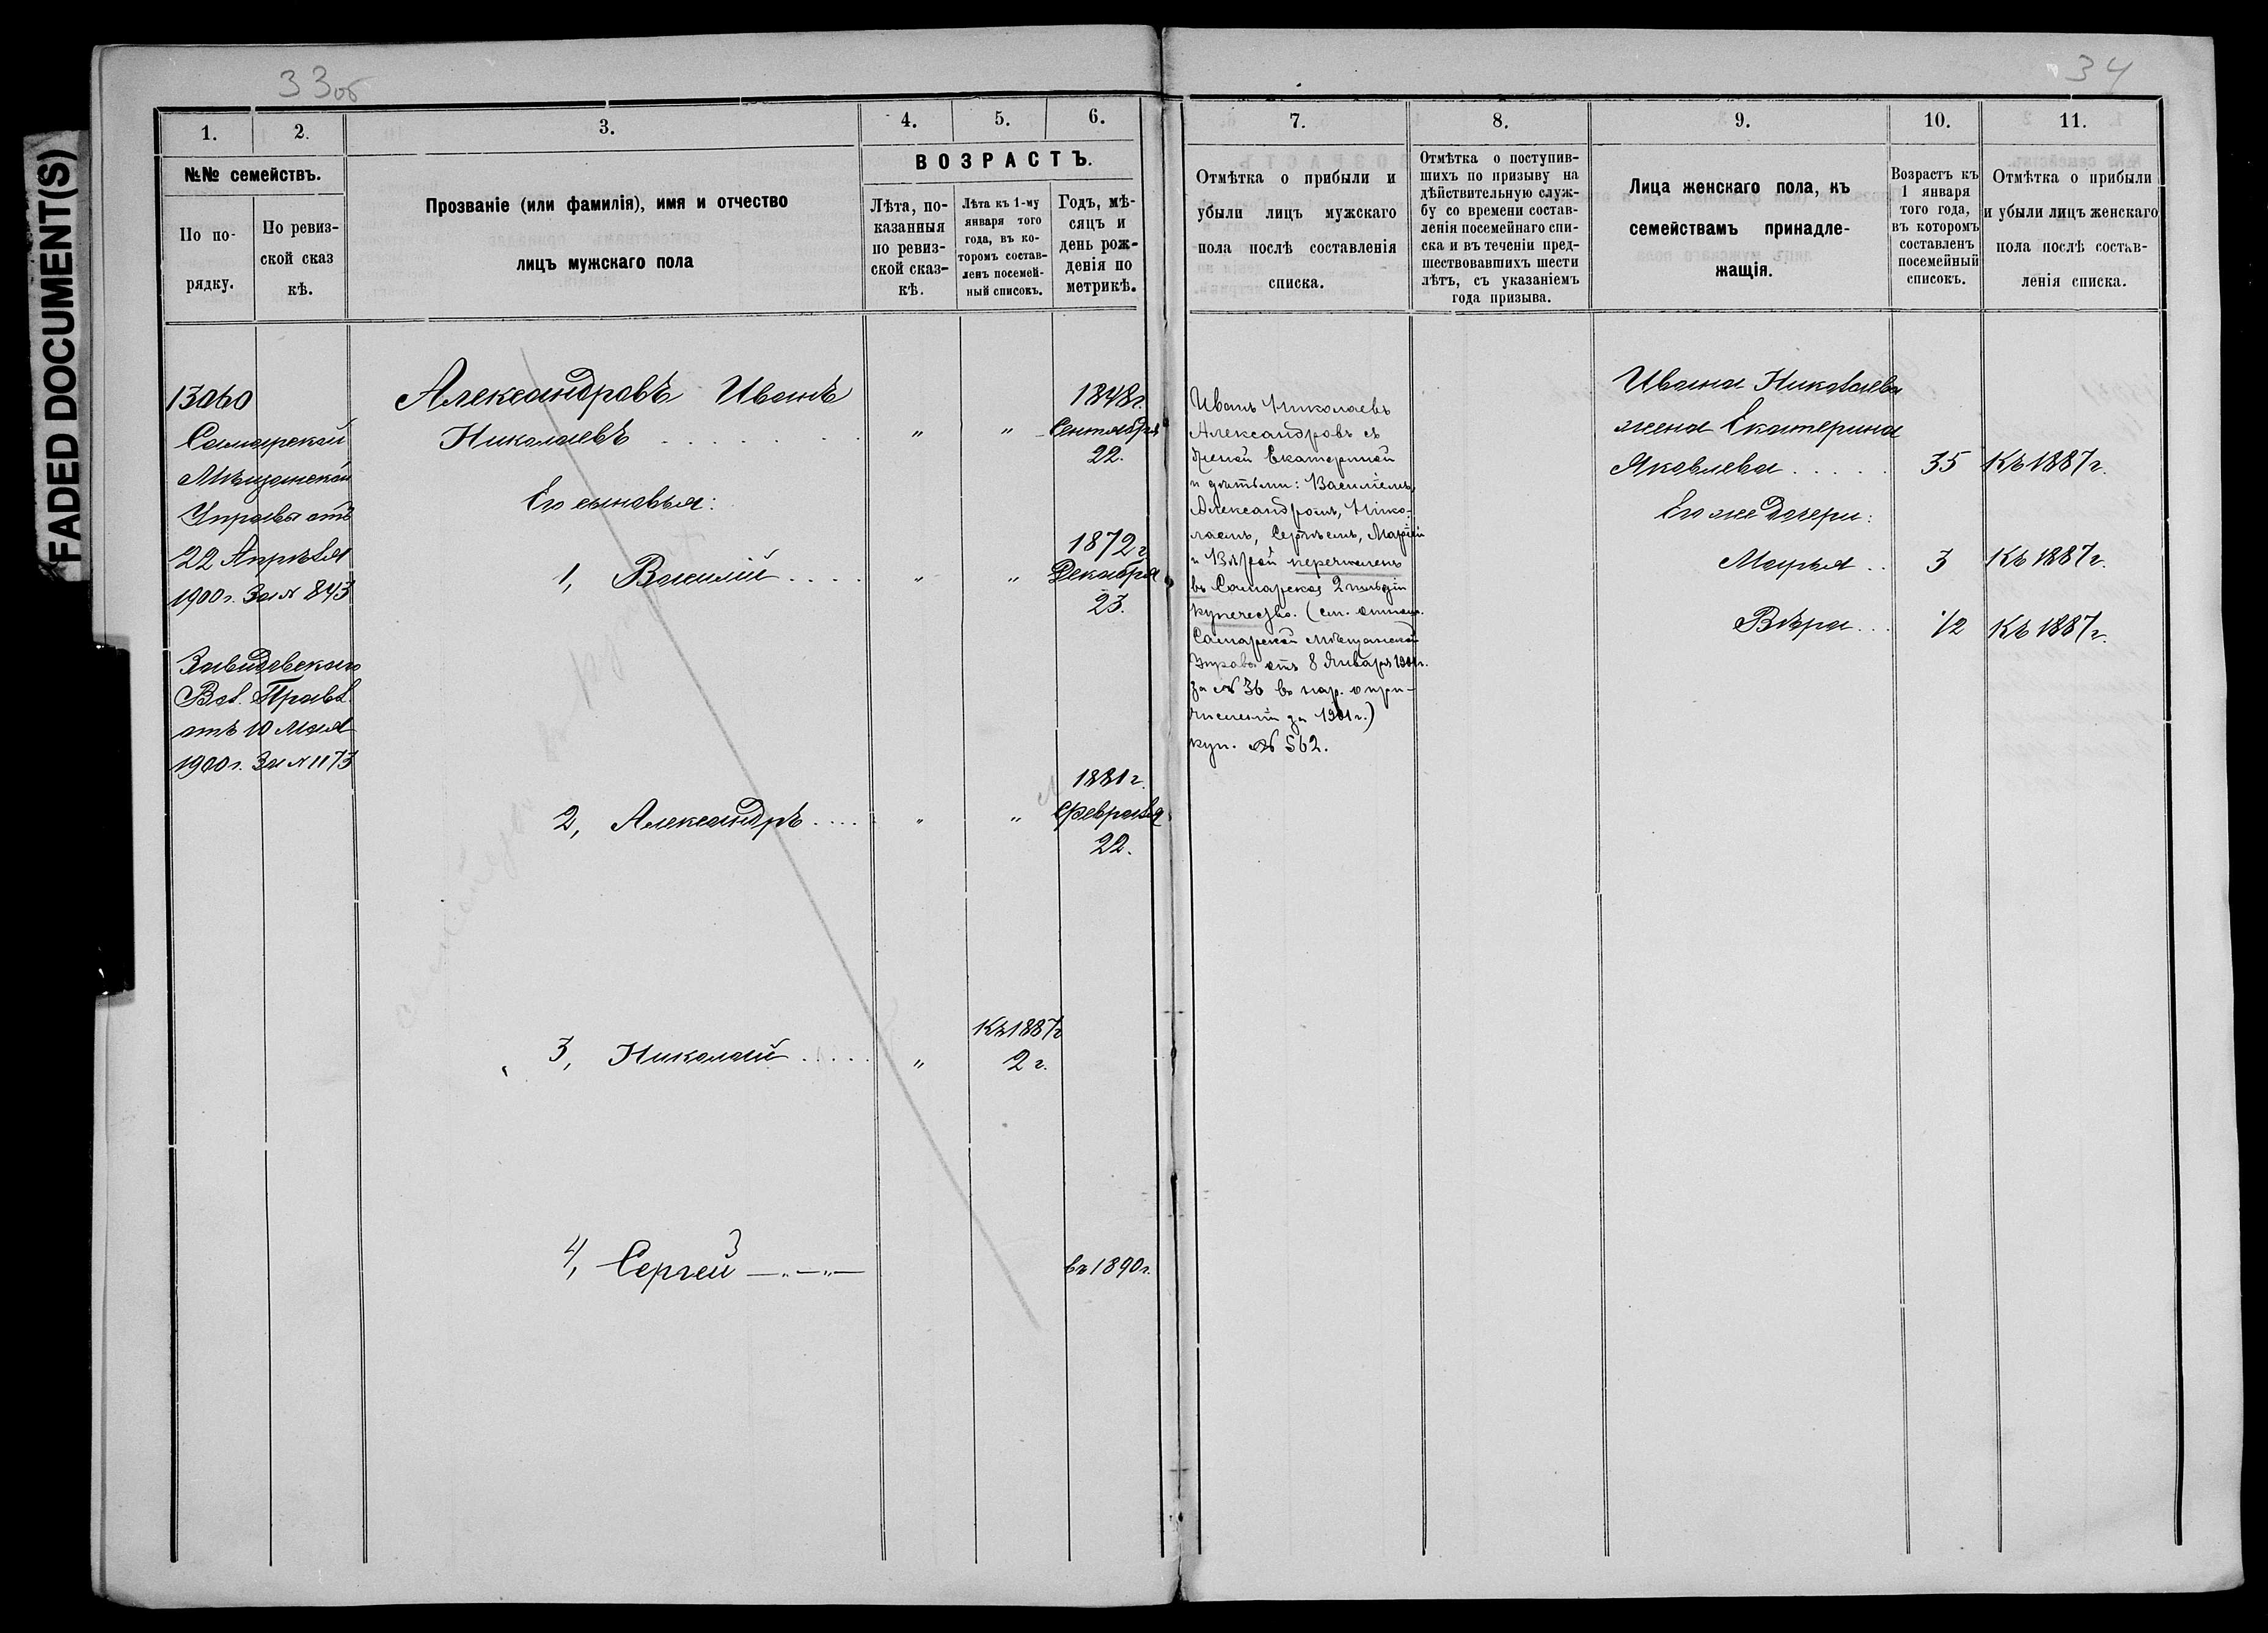 FADED DOCUMENT(S)
33об
1.
2.
3.
4.
5.
6.
№№ семействъ.
По по-
рядку.
По ревиз-
ской сказ
кѣ.
Прозваніе (или фамилія), имя и отчество
лицъ мужскаго пола
ВОЗРАСТЪ.
Лѣта, по-
казанныя
по ревиз-
ской сказ-
кѣ.
Лѣта къ 1-му
января того
года, въ ко-
торомъ состав-
ленъ посемей-
ный списокъ.
Годъ, мѣ-
сяцъ и
день рож-
денія по
метрикѣ.
13060
Самарской
Мѣщанской
Управы отъ
22 Апрѣля
1900 г. За № 843
Завидовскаго
Вол. Правл.
отъ 10 Мая
1900 г. За № 1173
Александровъ Иванъ
Николаевъ . . . . . . . " "
1848 г.
Сентября
22.
Его сыновья:
1, Василій . . . . " "
1872 г
Декабря
23.
2, Александръ . . . . " "
1881 г.
Февраля
22.
3, Николай . . . . . "
Къ 1887 г
2 г.
4, Сергей — „ — „ —
въ 1890 г.
34
7.
8.
9.
10.
11.
Отмѣтка о прибыли и
убыли лицъ мужскаго
пола послѣ составленія
списка.
Отмѣтка о поступив-
шихъ по призыву на
дѣйствительную служ-
бу со времени состав-
ленія посемейнаго спи-
ска и въ теченіи пред-
шествовавшихъ шести
лѣтъ, съ указаніемъ
года призыва.
Лица женскаго пола, къ
семействамъ принадле-
жащія.
Возрастъ къ
1 января
того года,
въ которомъ
составленъ
посемейный
списокъ.
Отмѣтка о прибыли
и убыли лицъ женскаго
пола послѣ состав-
ленія списка.
Иванъ Николаевъ
Александровъ съ
женой Екатериной
и дѣтьми: Василіемъ,
Александромъ, Нико-
лаемъ, Сергѣемъ, Маріей
и Вѣрой перечисленъ
въ Самарское 2 гильдіи
купечество. (см. отнош.
Самарской мѣщанской
Управы отъ 8 Января 1901 г.
за № 36 въ нар. о при-
численіи за 1901 г.)
куп. № 562.
Ивана Николаева
жена Екатерина
Яковлева . . . . . 35 Къ 1887 г.
Его же дочери:
Марья . . 3 Къ 1887 г.
Вѣра . . . 1/2 Къ 1887 г.